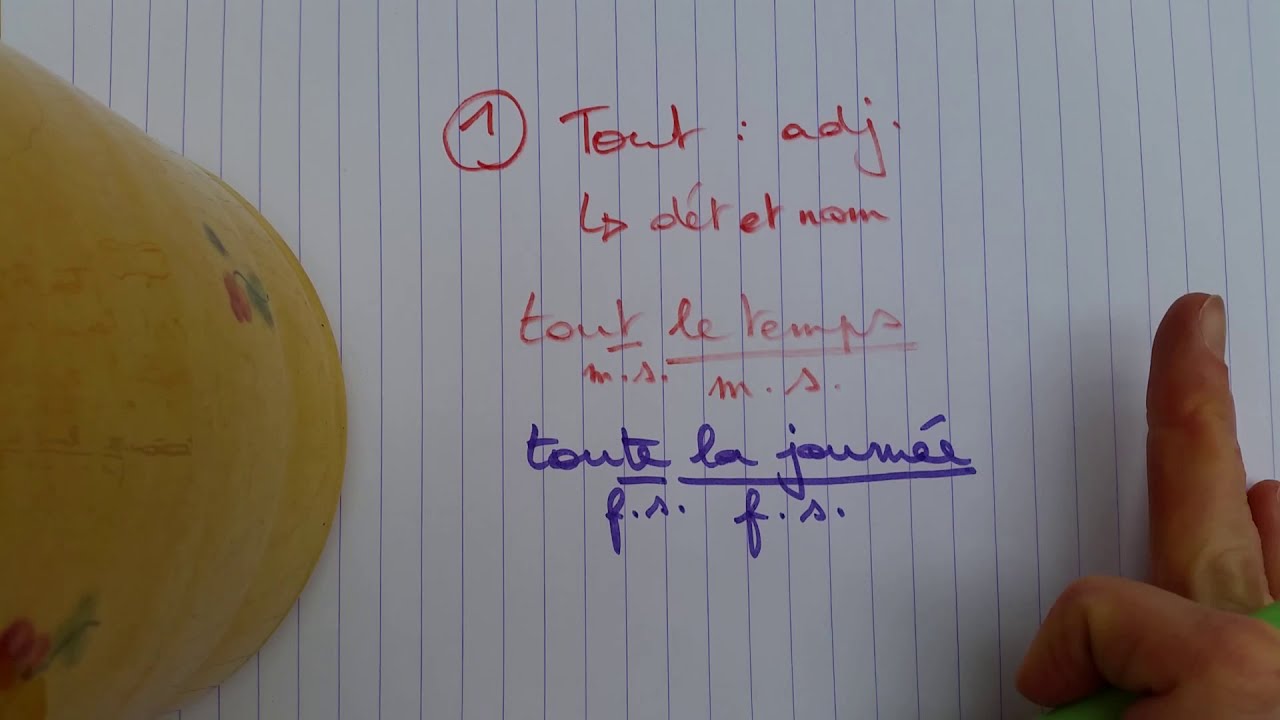 1 Tout : adj.
↳ dét et nom
tout le temps
m.s. m.s.
toute la journée
f.s. f.s.